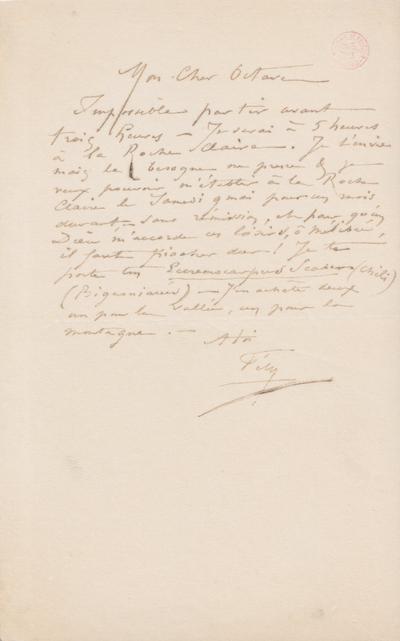 Mon Cher Octave
Impossible partir avant
trois heures – Je serai à 5 heures
à la Roche Claire. Je t'envie
mais la besogne me presse & je
veux pouvoir m'établir à la Roche
Claire le Samedi 9 mai pour un mois
durant, sans rémission, et pour qu'un
Dieu m'accorde ces loisirs, ô Mélibée,
il faut piocher dur! Je te
porte un Eccremocarpus Scaber (Chili)
(Bignoniacée) – J'en achète deux
un pour la vallée, un pour la
montagne. –
A toi
Fély